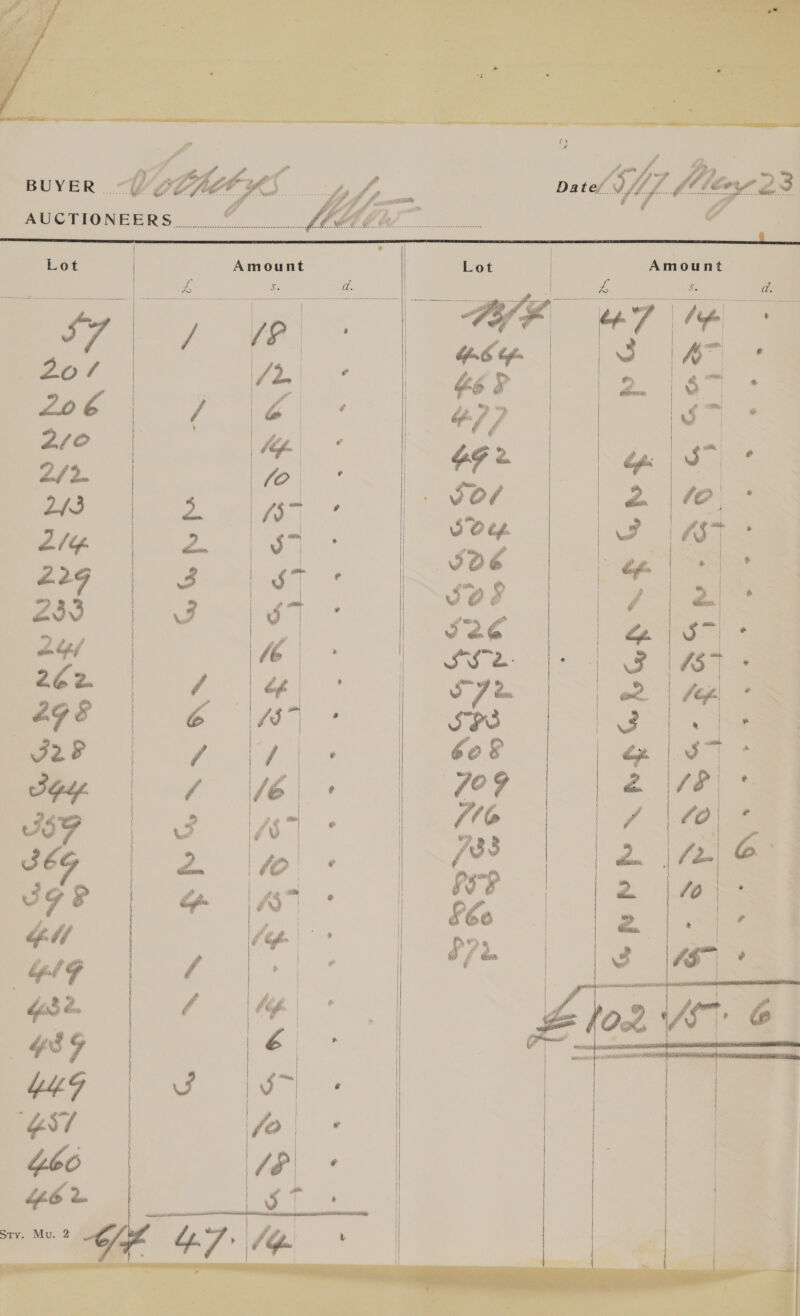 BUYER Sothebys
Date 8/17 May 23
AUCTIONEERS
Lot Amount
£ s. d.
57 1 18 .
201 12 .
206 1 6 .
210 14 .
212 10 .
213 2 15 .
214 2 5 .
229 3 5 .
233 3 5 .
241 16 .
262 1 4 .
298 6 15 .
328 1 1 .
344 1 16 .
359 3 15 .
369 2 10 .
398 4 15 .
411 14 .
419 1 . .
432 1 14 .
439 6 .
449 3 5 .
451 10 .
460 18 .
462 5 .
Sty. Mu. 2 C/F 47 14 .
Lot Amount
£ s. d.
B/F 47 14 .
464 3 15 .
468 2 5 .
477 5 .
492 4 5 .
501 2 10 .
504 3 15 .
506 4 . .
508 1 2 .
526 4 5 .
552 3 15 .
572 2 14 .
583 3 . .
608 4 5 .
709 2 18 .
716 1 10 .
733 2 12 6
858 2 10 .
860 2 . .
872 3 15 .
£ 102 15 6